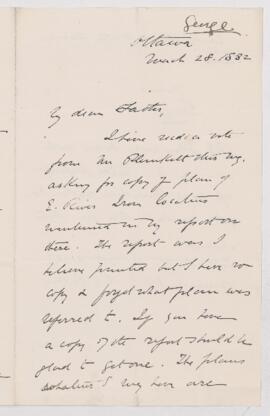 George
Ottawa
March 28. 1882
My dear Father,
I have recd a note
from Mr Plunkett this mg.
asking for copy of plan of
E. River Iron localities
mentioned in my report on
there. The report was I
believe printed but I have no
copy & forget what plan was
referred to. If you have
a copy of the report should be
glad to get one. The plans
I may have are